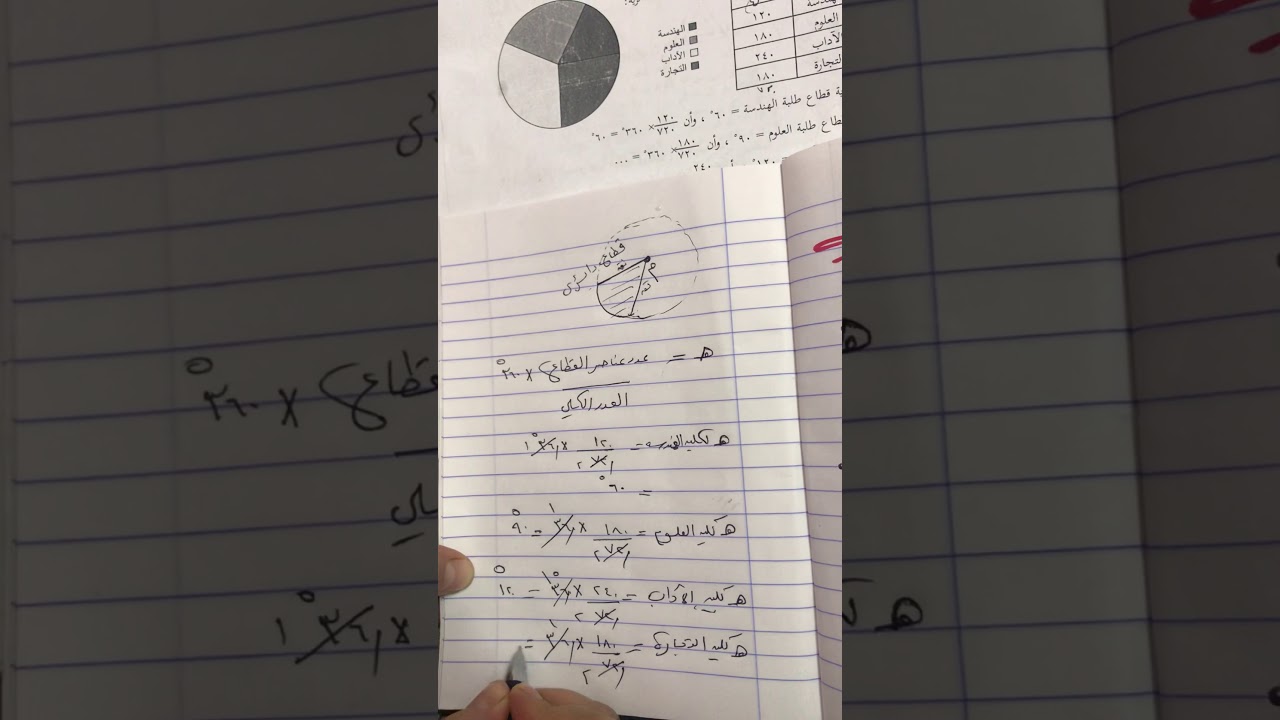 الهندسة
العلوم
الآداب
التجارة
١٢٠
العلوم
١٨٠
الآداب
٢٤٠
١٨٠
٧٢٠
قطاع طلبة الهندسة = ٦٠° ، وأن ١٢٠/٧٢٠ × ٣٦٠° = ٦٠°
طلبة العلوم = ٩٠° ، وأن ١٨٠/٧٢٠ × ٣٦٠° = ...
٢٤٠
قطاع دائري
م
هـ = عدد عناصر القطاع × ٣٦٠°
العدد الكلي
هـ لكلية الهندسة = ١٢٠/٧٢٠ × ٣٦٠° ١
٢
= ٦٠°
هـ كلية العلوم = ١٨٠/٧٢٠ × ٣٦٠ = ٩٠°
٢
هـ كلية الآداب = ٢٤٠/٧٢٠ × ٣٦٠° = ١٢٠°
٢
هـ كلية التجارة = ١٨٠/٧٢٠ × ٣٦٠ =
٢